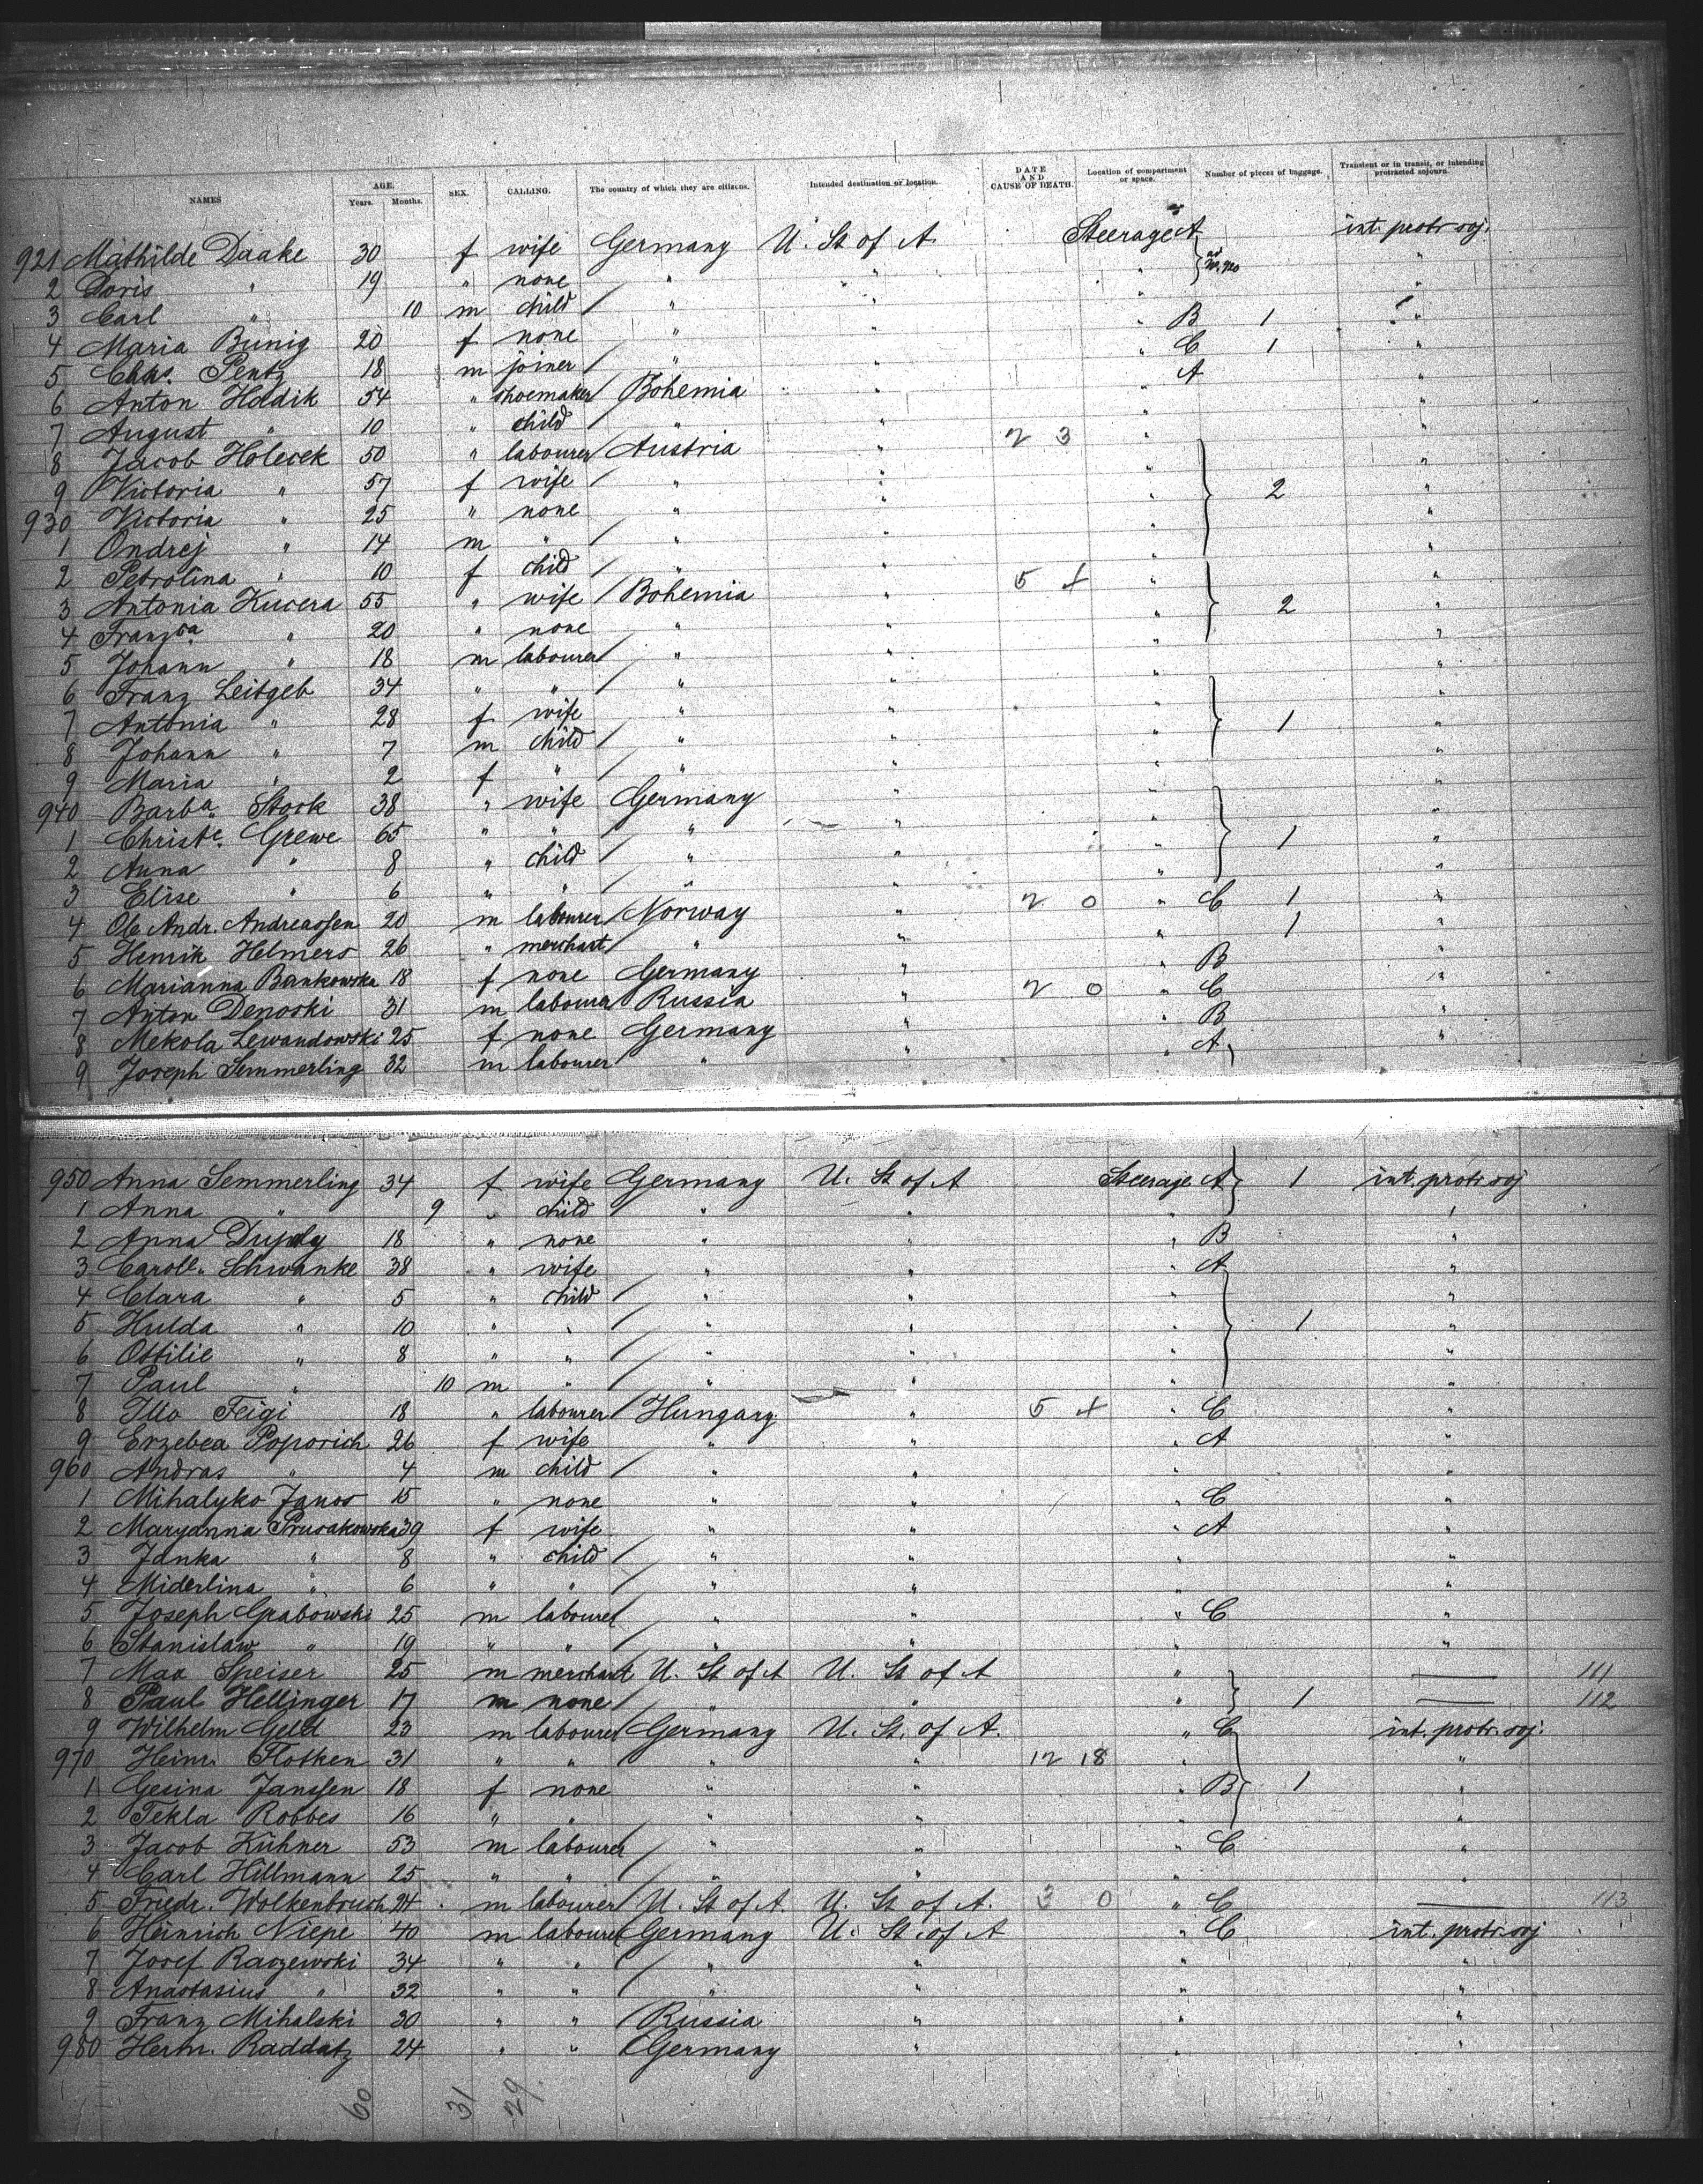 NAMES AGE. Years. Months. SEX. CALLING. The country of which they are citizens. Intended destination or location. DATE AND CAUSE OF DEATH. Location of compartment or space. Number of pieces of baggage. Transient or in transit, or intending protracted sojourn.
921 Mathilde Daake 30 f wife Germany U. St of A. Steerage A int. protr soj.
2 Doris " 19 " none " " " } as No. 920 "
3 Carl " 10 m child / " " " "
4 Maria Bünig 20 f none " " " B 1 "
5 Chas. Pentz 18 m joiner / " " " C 1 "
6 Anton Hodik 54 " shoemaker / Bohemia " " A "
7 August " 10 " child / " " " "
8 Jacob Holecek 50 " labourer / Austria " 2 3 " "
9 Victoria " 57 f wife / " " " "
930 Victoria " 25 " none " " " 2 "
1 Ondrej " 14 m " / " " " "
2 Petrolina " 10 f child / " " " "
3 Antonia Kucera 55 " wife / Bohemia " 5 + " "
4 Franz.ca " 20 " none " " " 2 "
5 Johann " 18 m labourer / " " " "
6 Franz Leitgeb 34 " " / " " " "
7 Antonia " 28 f wife " " " "
8 Johann " 7 m child / " " " 1 "
9 Maria " 2 f " / " " " "
940 Barba. Stock 38 " wife Germany " " "
1 Christe. Grewe 65 " " " " " "
2 Anna " 8 " child / " " " 1 "
3 Elise " 6 " " / " " " "
4 Ole Andr. Andreassen 20 m labourer / Norway " 2 0 " C 1 "
5 Henrik Helmers 26 " merchant / " " " 1 "
6 Marianna Bankowska 18 f none Germany " " B "
7 Anton Denoski 31 m labourer Russia " 2 0 " C "
8 Mekola Lewandowski 25 f none Germany " " B "
9 Joseph Semmerling 32 m labourer " " " A "
950 Anna Semmerling 34 f wife Germany U. St of A Steerage A } 1 int. protr soj
1 Anna " 9 " child " " " "
2 Anna 18 " none " " " B "
3 Carole. Schwanke 38 " wife " " " A "
4 Clara " 5 " child / " " " "
5 Hulda " 10 " " / " " " 1 "
6 Ottilie " 8 " " / " " " "
7 Paul " 10 m " / " " " "
8 Illo Feigi 18 " labourer / Hungary " 5 + " C "
9 Erzebea Poporich 26 f wife " " " A "
960 Andras " 4 m child / " " " "
1 Mihalyko Janos 15 " none " " " C "
2 Maryanna Prusakowska 39 f wife " " " A "
3 Janka " 8 " child / " " " "
4 Miderlina " 6 " " / " " " "
5 Joseph Grabowski 25 m labourer " " " C "
6 Stanislaw " 19 " " / " " " "
7 Max Speiser 25 m merchant U. St of A U. St of A " — 111
8 Paul Hellinger 17 m none / " " " 1 — 112
9 Wilhelm Geld 23 m labourer Germany U. St. of A. " C int. protr. soj.
970 Heinr. Flotken 31 " " " " 12 18 " "
1 Gesina Janssen 18 f none " " " B 1 "
2 Tekla Robbes 16 " " " " " "
3 Jacob Kühner 53 m labourer / " " " C "
4 Carl Hillmann 25 " " / " " " "
5 Friedr. Wolkenbruch 24 m labourer / U. St of A. U. St of A. 3 0 " C — 113
6 Heinrich Niepe 40 m labourer Germany U. St. of A " C int. protr. soj
7 Josef Raczewski 34 " " / " " " "
8 Anastasius " 32 " " / " " " "
9 Franz Mihalski 30 " " Russia " " "
980 Herm. Raddatz 24 " " Germany " " "
60 31 29